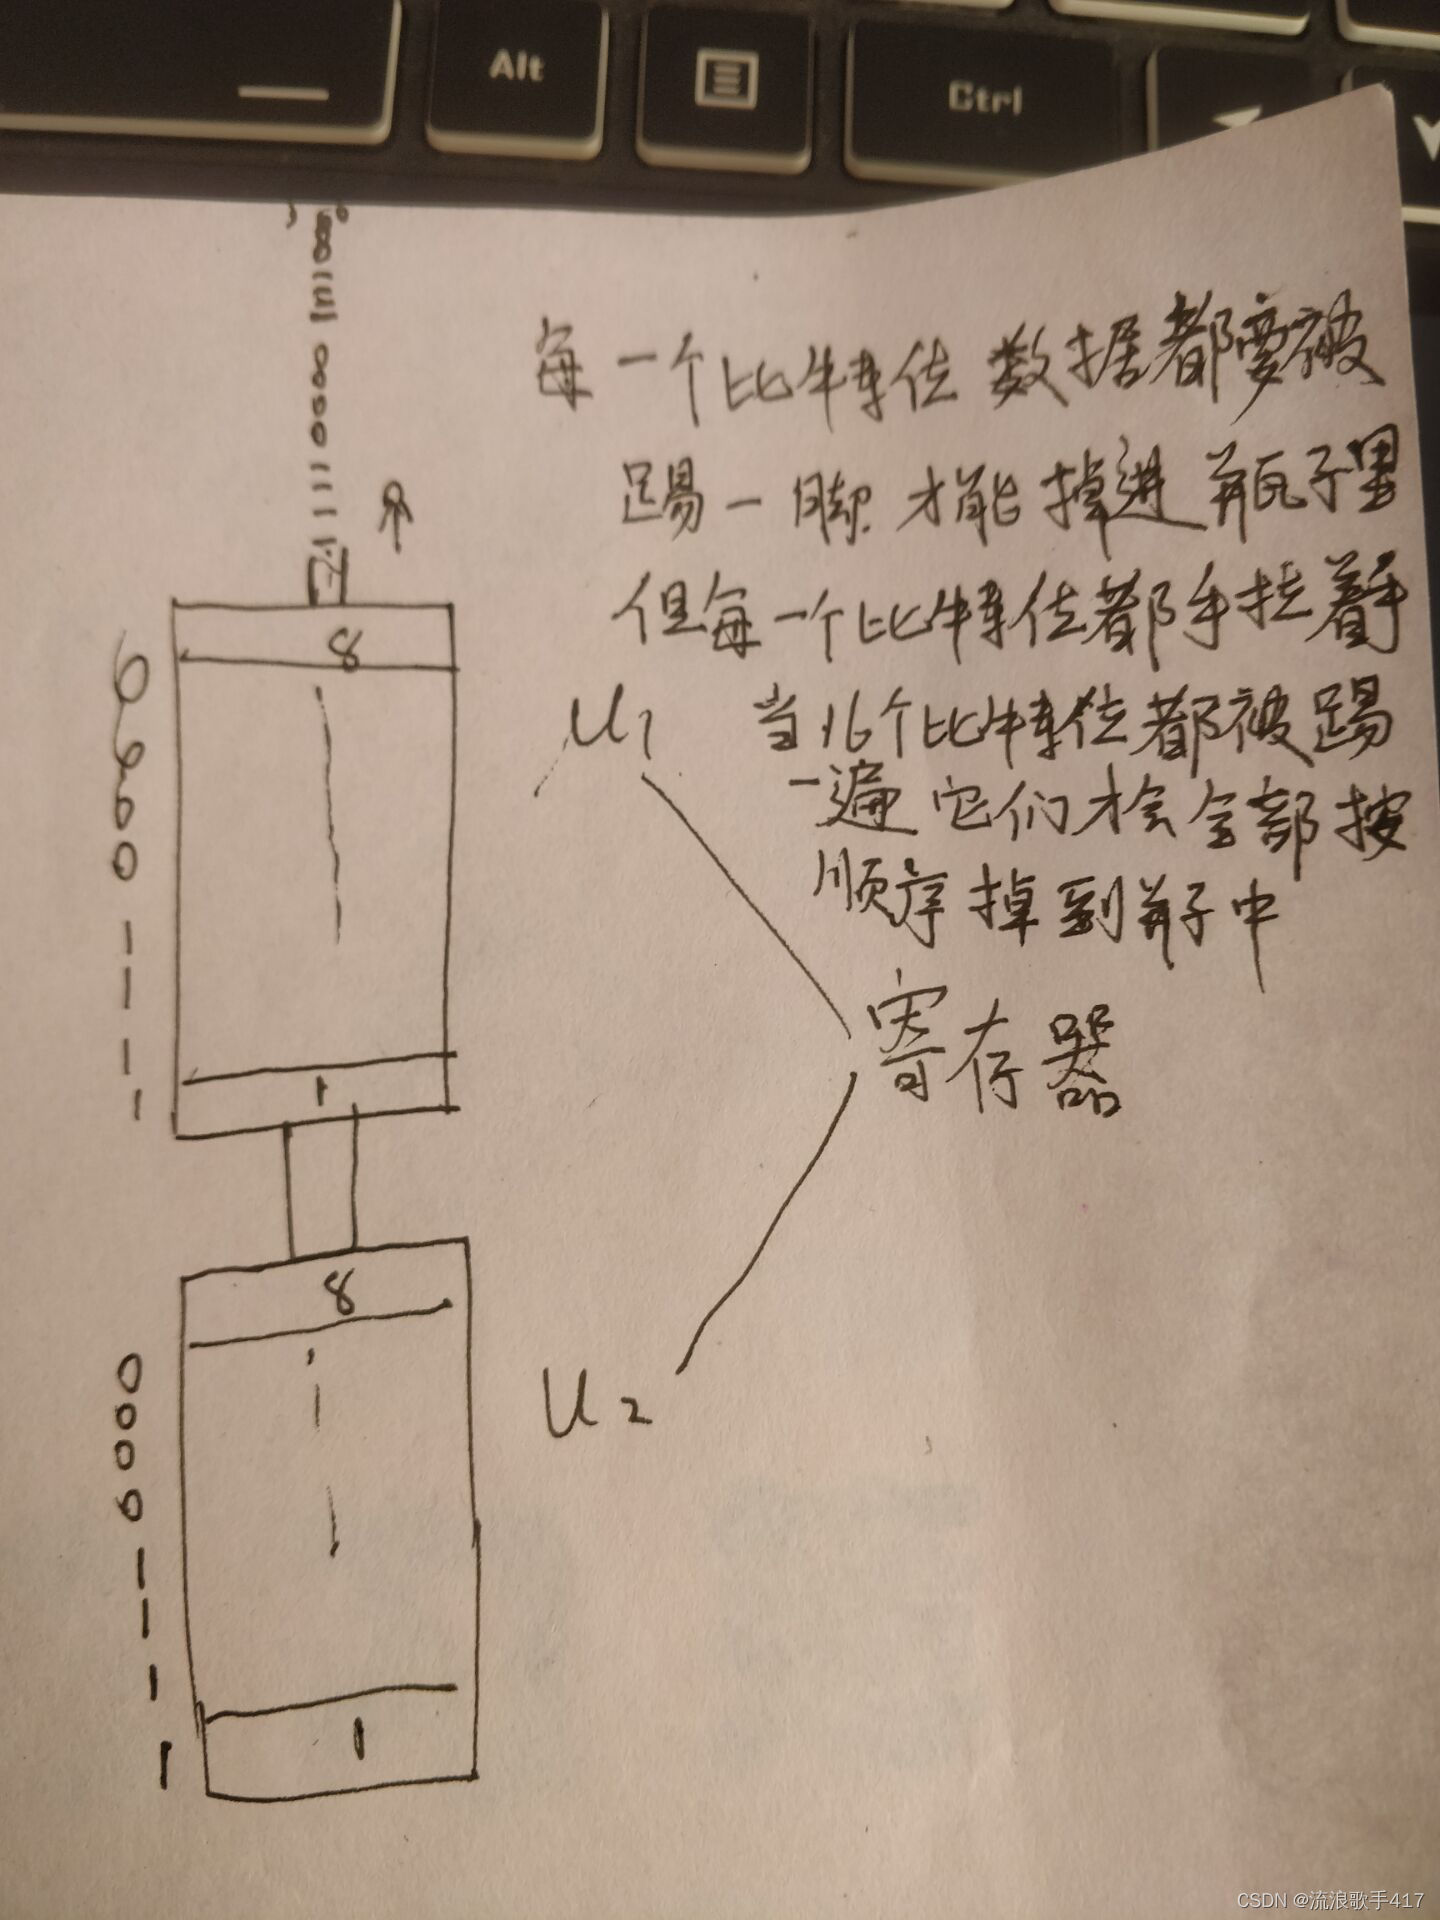 Alt
Ctrl
每一个比特位数据都要被
踢一脚才能掉进瓶子里
但每一个比特位都手拉着手
当16个比特位都被踢
一遍它们才会全部按
顺序掉到瓶子中
8
U1
1
寄存器
8
U2
1
0
0
0
0
1
1
1
1
0
0
0
0
1
1
1
1
CSDN @流浪歌手417